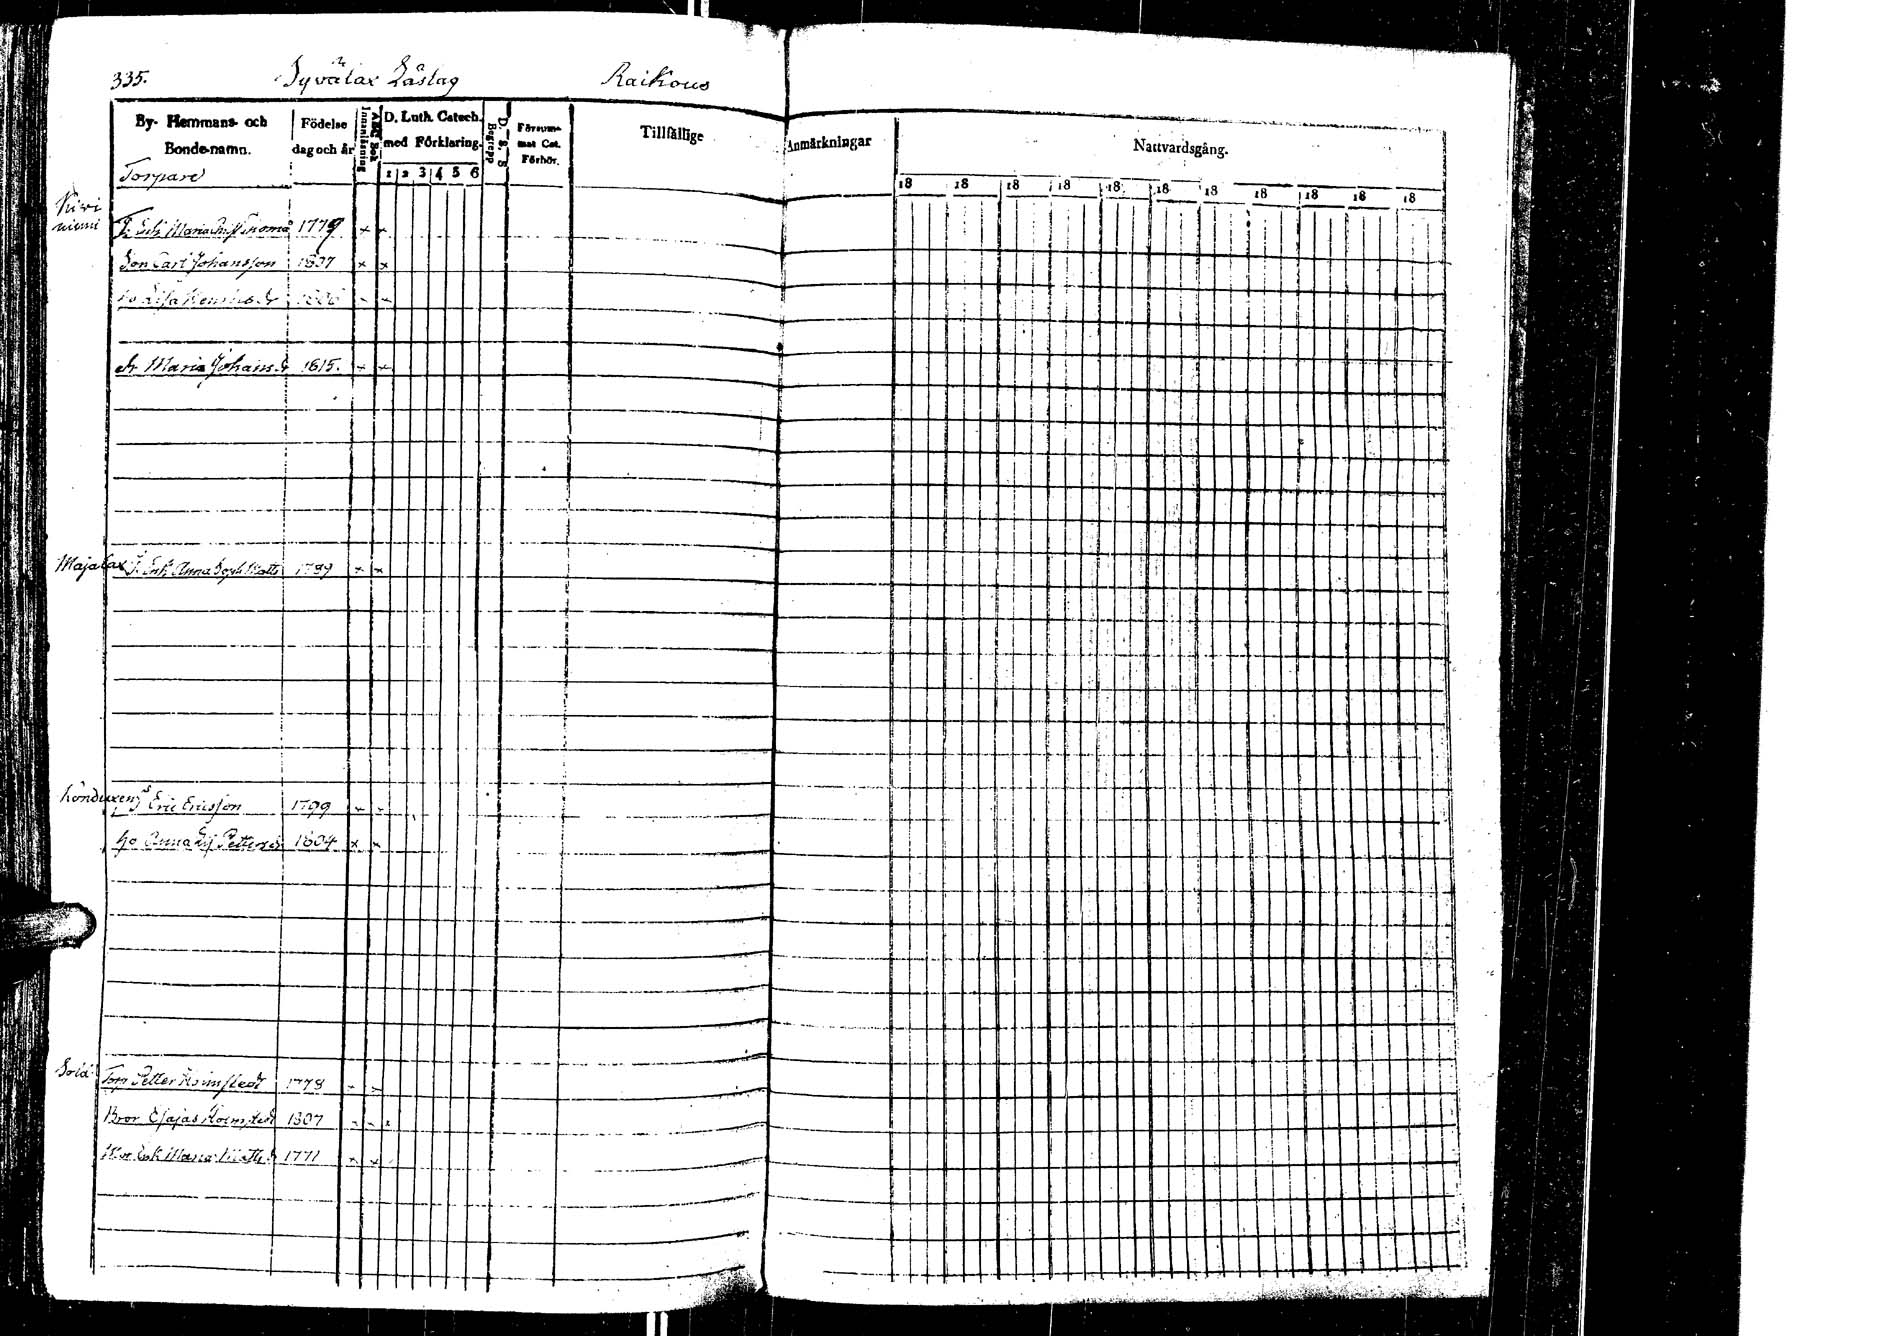 335. Syvälax Läslag Raikous
By- Hemmans- och Bonde-namn. Födelse dag och år Innanläsning ABC Bok D. Luth. Catech. med Förklaring. 1 2 3 4 5 6 Begrepp D. S. S Försummat Cat. Förhör. Tillfällige Anmärkningar Nattvardsgång.
Torpare
18 18 18 18 18 18 18 18 18 18 18
Kivi
niemi
Enk Maria 1779 × ×
Son Carl Johansson 1807 × ×
ho Lisa
dr Maria Johansdr 1815. × ×
Majalax Enk Anna Matts 1789 × ×
Eric Ericsson 1799 × ×
ho Anna Lis Pettersdr 1804 × ×
Torp Petter Holmstedt 1778 × ×
Bror Esajas Holmstedt 1807 × × ×
Mor Enk Maria Mattsdr 1771 × ×